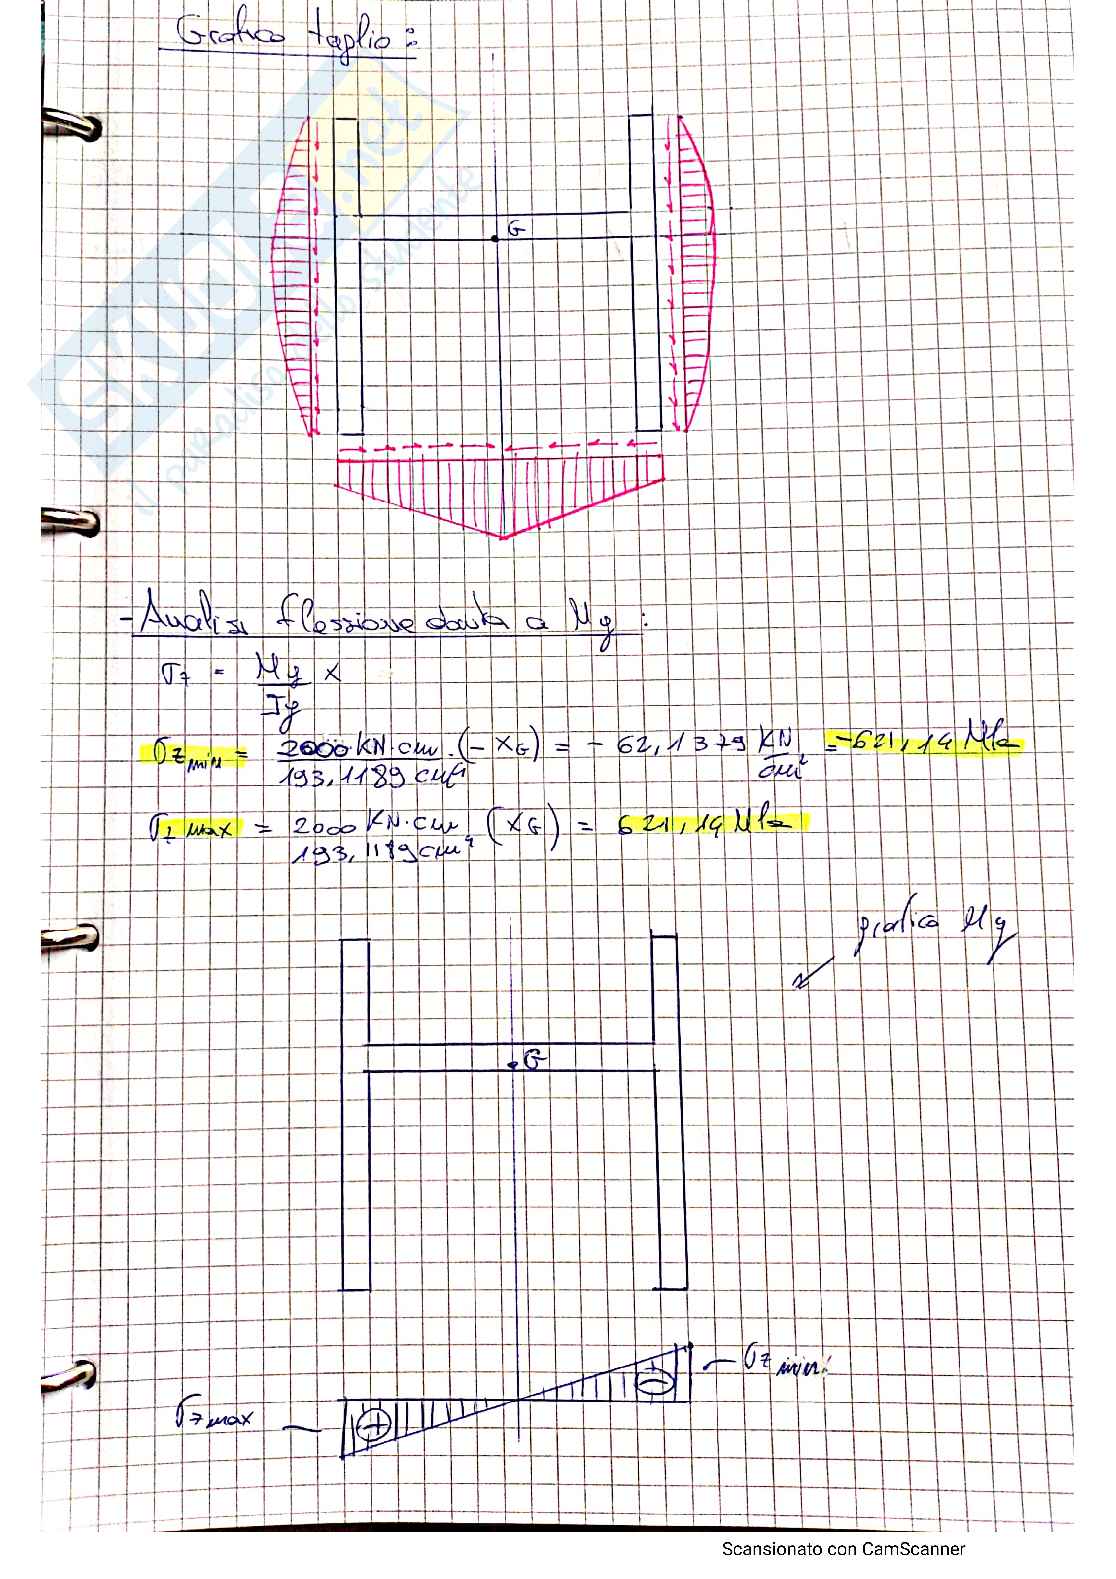 Grafico taglio:
G
- Analisi flessione dovuta a My :
σz = My/Jy x
σz min = 2000 KN·cm/193,1189 cm⁴ · (- XG) = - 62,1379 KN/cm² = -621,14 MPa
σz max = 2000 KN·cm/193,1189 cm⁴ (XG) = 621,14 MPa
grafico My
G
σz min
+
-
σz max
SKUOLA.net
il paradiso dello studente
Scansionato con CamScanner